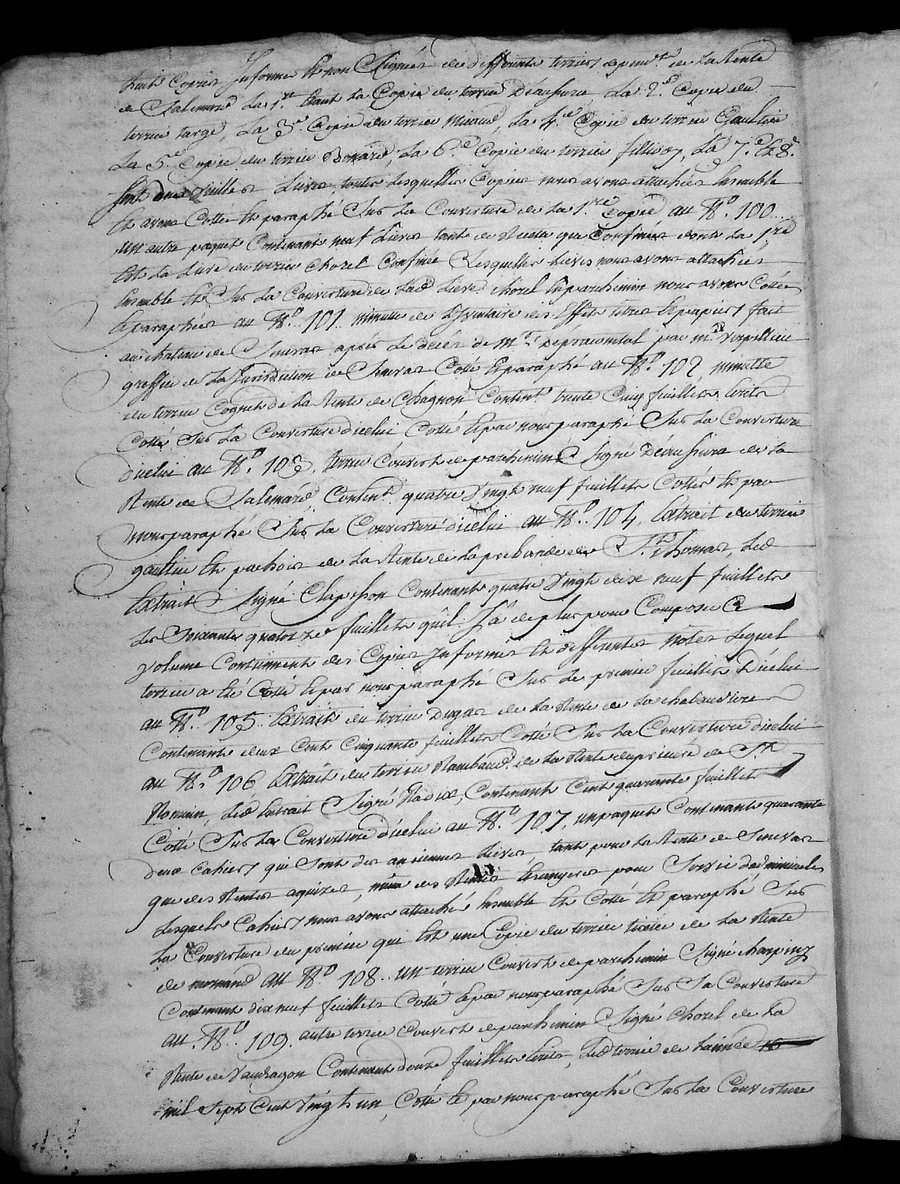 huit Copies Informes et non Signées de differents terriers dependts de la Rente
de Salemard La 1re Etant La Copie du terrier Deaufsura La 2e Copie du
terrier targe, La 3e Copie du terrier La 4e Copie du terrier Gaultier
La 5e Copie du terrier Bonard La 6e Copie du terrier filliou, La 7e et 8e
sont deux vieilles Lieves toutes lesquelles Copies nous avons attachées Ensemble
Et avons Cotté Et paraphé Sur La Couverture de La 1re Copie au No 100
un autre paquet Contenant neuf Lieves tant de Recette que Confiner dont La 1re
Est La Lieve du terrier Chorel Confinée Lesquelles Lieves nous avons attachées
Ensemble Et Sur La Couverture de Lad Lieve Chorel En parchemin nous avons Cotté
Et paraphées au No 101 minutte de L'Inventaire des Effets titres Et papiers fait
au chateau de Senevas après Le decès de Mr par me Vespellieu
greffier de La Jurisdiction de Senevas Cotté Et paraphé au No 102 minutte
du terrier Cognet de La Rente de Chagnon Content trente Cinq feuillets Ecrits
Cotté Sur La Couverture d'icelui Cotté Et par nous paraphé Sur La Couverture
d'icelui au No 103, terrier Couvert de parchemin Signé Déaufsura de La
Rente de Salemard, Content quatre Vingt neuf feuillets Cottés Et par
nous paraphé Sur La Couverture d'icelui au No 104, Extrait du terrier
gaultier Et pachois de La Rente de La prebande de St Thomas, Led
Extrait Signé Clapesson Contenant quatre Vingt dix neuf feuillets
Les Soixante quatorze feuillets qu'il y a de plus pour Composer Ce
volume Contiennent des Copies Informes Et differentes nottes Lequel
terrier a été Cotté Et par nous paraphé Sur Le premier feuillet d'icelui
au No 105 Extrait du terrier Dugas de La Rente de La chatelainie
Contenant deux Cent Cinquante feuillets Cotté Sur La Couverture d'icelui
au No 106 Extrait du terrier Rambaud de La Rente du prieuré de St
Romain, Led Extrait Signé Nadix, Contenant Cent quarante feuillets
Cotté Sur La Couverture d'icelui au No 107, un paquet Contenant quarante
deux Cahiers qui Sont des anciennes Lieves tant pour La Rente de Senevas
que des Rentes aquizes, même des Rentes Etrangeres pour Servir d'adminicules
Lesquels Cahiers nous avons attaché Ensemble Et Cotté Et paraphé Sur
La Couverture du premier qui Est une Copie du terrier terrier de La Rente
de mornand au No 108. un terrier Couvert de parchemin Signé charpiny
Contenant dix neuf feuillets Cotté Et par nous paraphé Sur Sa Couverture
au No 109. autre terrier Couvert de parchemin Signé Chorel de La
Rente de Vaudragon Contenant douze feuillets Ecrits, Led terrier de L'année
mil Sept Cent Vingt un, Cotté Et par nous paraphé Sur La Couverture